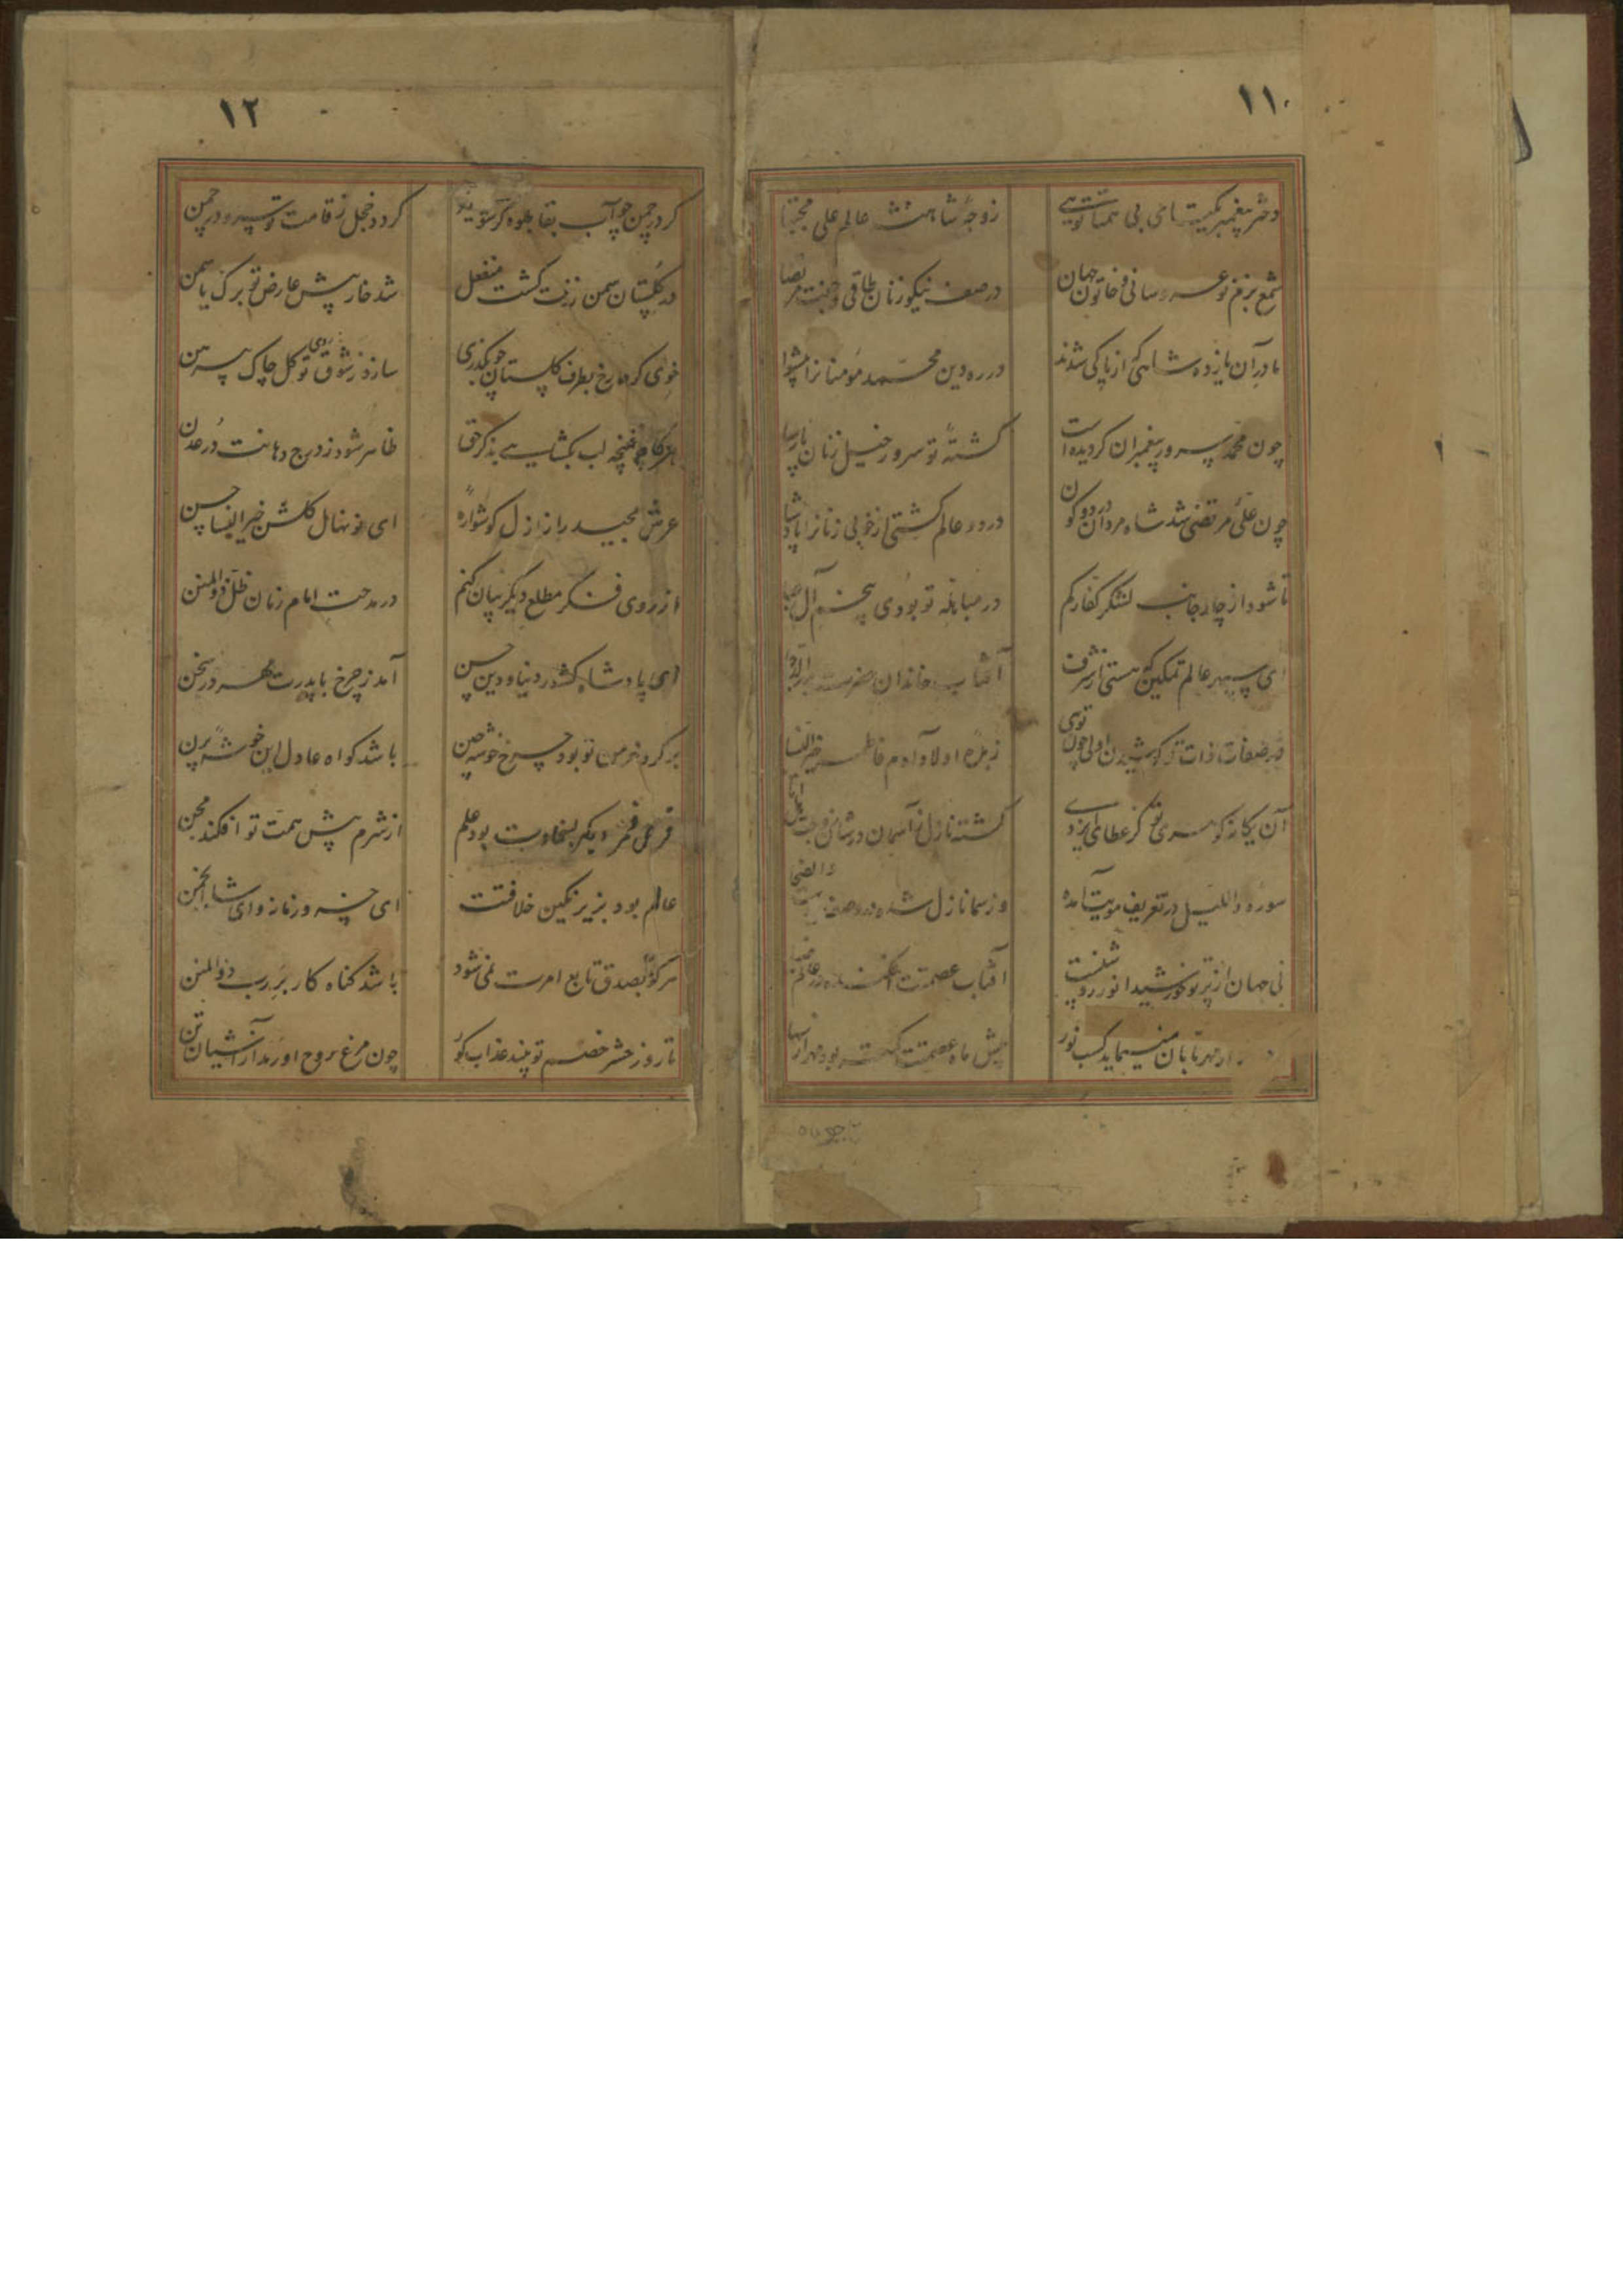 ۱۱
دختر پیغمبر یکتای بی همتا تویی زوجهٔ شاهنشه عالم علی مجتبا
شمع بزم نو عروسانی و خاتون جهان در صف نیکو زنان طاقی و جفت مرتضا
مادر آن یازده شاهی کز پاکی شدند در ره دین محمد مومنانرا پیشوا
چون محمد سرور پیغمبران کردیده است کشتهٔ تو سرور خیل زنان پارسا
چون علی مرتضی شد شاه مردان در دو کون در دو عالم کشتی از خوبی زنانرا پادشا
تا شود از چار جانب لشکر کفار کم در مباهله تو بودی پنجم آل عبا
ای سپهر عالم تمکین که هستی از شرف آفتاب خاندان حضرت
در صفات ذات تو کوشیدن اولی چون تویی زهرهٔ اولاد آدم فاطمه خیر النسا
آن یکانه کوهری تو کز عطای ایزدی کشته نازل ز آسمان در شان
سوره واللیل در تعریف مویت آمده وز سما نازل شده در وصف والضحی
نی جهان از پرتو خورشید انور روشنست آفتاب عصمتت در عالم
از مهر تابان مینماید کسب نور پیش ماه عصمتت بود مهر از
۱۲
کر در چمن چو آب بقا جلوه کر شوی کردد خجل ز قامت تو سرو در چمن
در کلستان سمن ز تنت کشت منفعل شد خار پیش عارض تو برک یاسمن
خوی کرده رخ بطرف کلستان چو بکذری سازد ز شوق روی تو کل چاک پیرهن
هرکاه چو غنچه لب بکشایی بذکر حق ظاهر شود ز درج دهانت در عدن
عرش مجید را ز ازل کوشواره ای نونهال کلشن خیر النسا حسن
از روی فکر مطلع دیکر بیان کنم در مدحت امام زمان ظل ذوالمنن
ای پادشاه کشور دنیا و دین حسن آمد ز چرخ با پدرت مهر در سخن
بر کرد خرمن تو بود چرخ خوشه چین باشد کواه عادل این خوشهٔ پرن
قرص قمر دیکر بسخاوت بود علم از شرم پیش همت تو افکند مجن
عالم بود بزیر نکین خلافتت ای خسرو زمانه و ای شاه انجمن
هرکو بصدق تابع امرت نمی شود باشد کناه کار بر رب ذوالمنن
تا روز حشر خصم تو بیند عذاب کور چون مرغ روح او رمد از آشیان تن